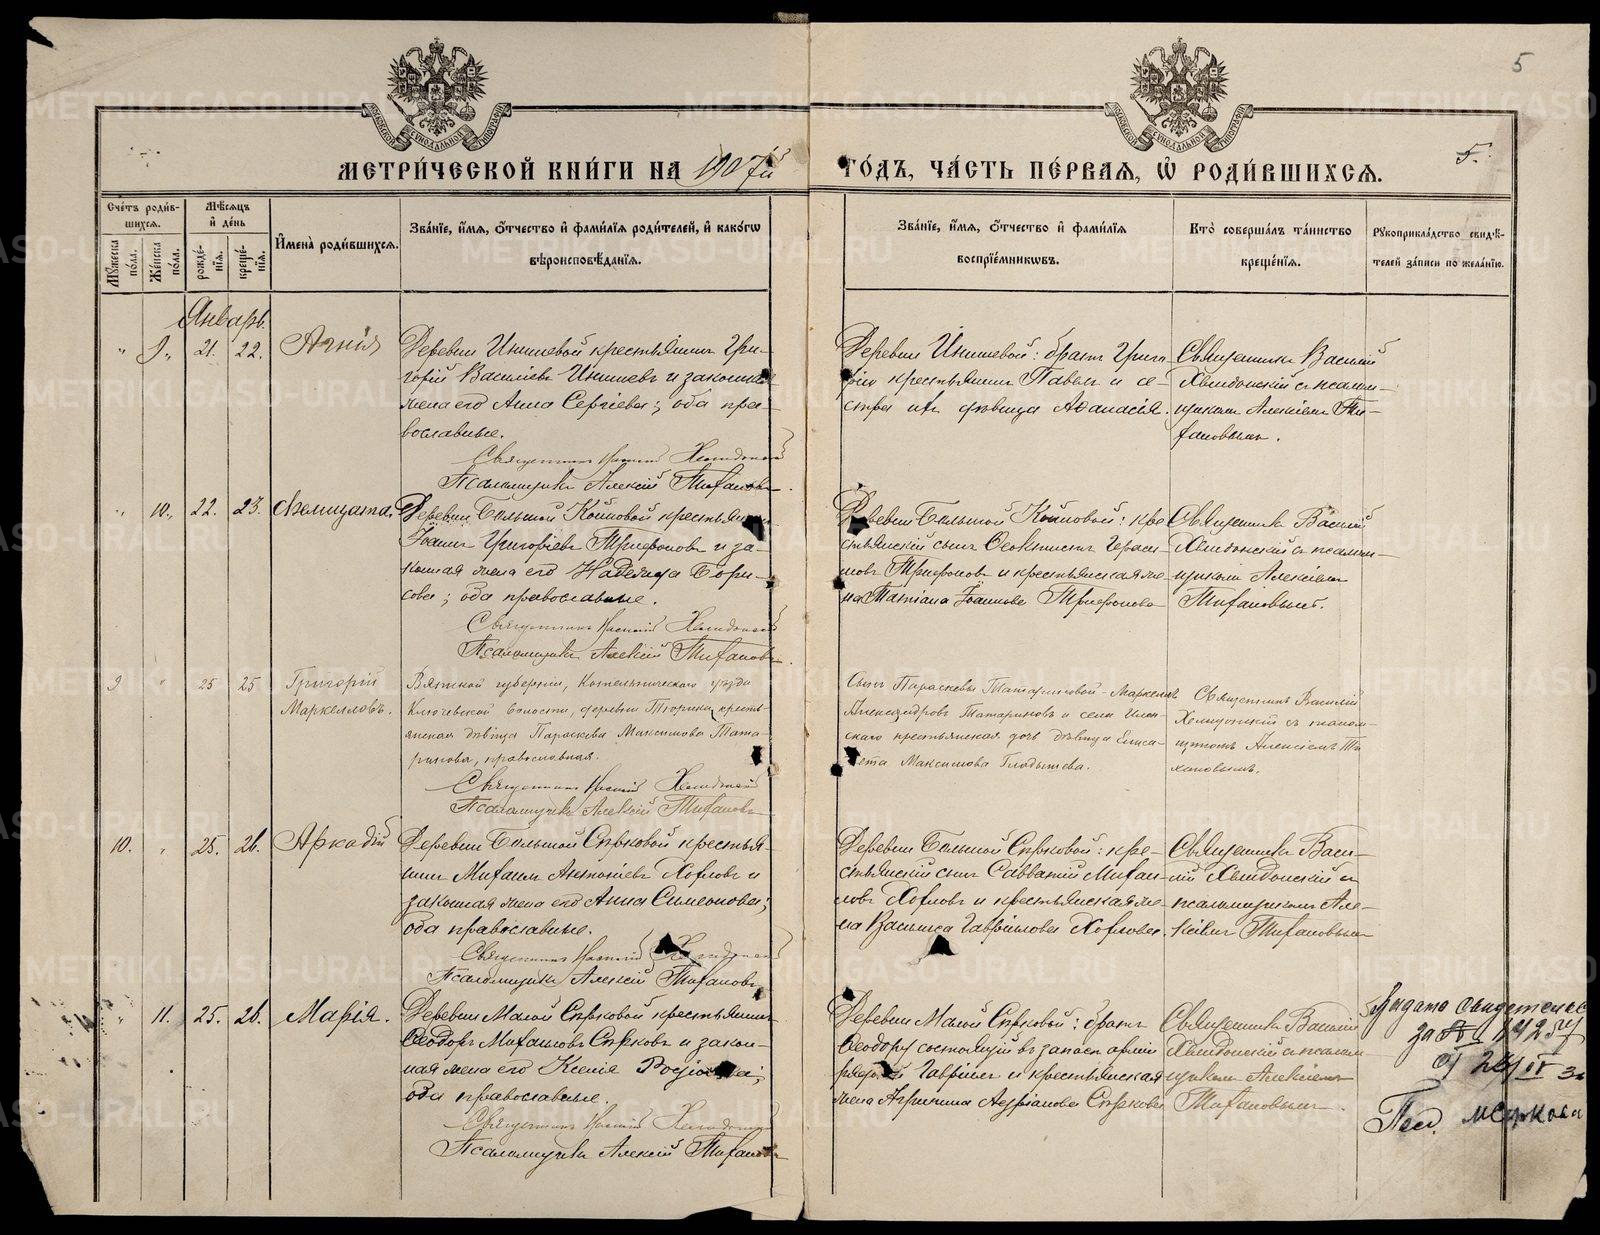 5
МОСКОВСКОЙ СУНОДАЛЬНОЙ ТИПОГРАФІИ
МЕТРИ́ЧЕСКОЙ КНИ́ГИ НА 1907й ГО́ДЪ, ЧА́СТЬ ПЕ́РВАЯ, Ѡ РОДИ́ВШИХСЯ.
5.
Сче́тъ роди́вшихся.
Му́жеска по́ла.
Же́нска по́ла.
Мѣ́сяцъ и де́нь
рожде́нїя.
креще́нїя.
Имена̀ роди́вшихся.
Зва́нїе, и́мя, о́тчество и фами́лїя роди́телей, и како́гѡ
вѣроисповѣ́данїя.
Зва́нїе, и́мя, о́тчество и фами́лїя
воспрїе́мникѡвъ.
Кто̀ соверша́лъ та́инство
креще́нїя.
Рукоприкла́дство свидѣ́-
телей за́писи по жела́нїю.
Январь.
" 9. 21. 22. Агнія
Деревни Инишевой крестьянинъ Гри-
горій Василіевъ Инишевъ и законная
жена его Анна Сергіева; оба пра-
вославные.
Священникъ Василій Хелидонскій
Псаломщикъ Алексій Тихановъ
Деревни Инишевой: братъ Григо-
рію крестьянинъ Павелъ и се-
стра ихъ дѣвица Аѳанасія.
Священникъ Василій
Хелидонскій съ псалом-
щикомъ Алексіемъ Ти-
хановымъ.
" 10. 22. 23. Фелицата.
Деревни Большой Койновой крестьянинъ
Іоаннъ Григоріевъ Трифоновъ и за-
конная жена его Надежда Бори-
сова; оба православные.
Священникъ Василій Хелидонскій
Псаломщикъ Алексій Тихановъ
Деревни Большой Койновой: кре-
стьянскій сынъ Ѳеоктистъ Гераси-
мовъ Трифоновъ и крестьянская же-
на Татіана Іоаннова Трифонова
Священникъ Василій
Хелидонскій съ псалом-
щикомъ Алексіемъ
Тихановымъ.
9 " 25 25 Григорій
Маркелловъ.
Вятской губерніи, Котельническаго уѣзда
Ключевской волости, деревни крестья-
янская дѣвица Параскева Максимова Тата-
ринова, православная.
Священникъ Василій Хелидонскій
Псаломщикъ Алексій Тихановъ
Сынъ Параскевы Татариновой - Маркеллъ
Александровъ Татариновъ и села
крестьянская дочь дѣвица Елиса-
вета Максимова Гладышева.
Священникъ Василій
Хелидонскій съ псалом-
щикомъ Алексіемъ Ти-
хановымъ.
10. " 25. 26. Аркадій
Деревни Большой Сѣрковой крестья-
нинъ Михаилъ Антоніевъ Хохловъ и
законная жена его Анна Симеонова;
оба православные.
Священникъ Василій Хелидонскій
Псаломщикъ Алексій Тихановъ
Деревни Большой Сѣрковой: кре-
стьянскій сынъ Савватій Михаи-
ловъ Хохловъ и крестьянская же-
на Василиса Гавріилова Хохлова.
Священникъ Васи-
лій Хелидонскій съ
псаломщикомъ Але-
ксіемъ Тихановымъ
" 11. 25. 26. Марія.
Деревни Малой Сѣрковой крестьянинъ
Ѳеодоръ Михаиловъ Сѣрковъ и закон-
ная жена его Ксенія
оба православные.
Священникъ Василій Хелидонскій
Псаломщикъ Алексій Тихановъ
Деревни Малой Сѣрковой: братъ
Ѳеодору состоящій въ запасѣ арміи
рядовой Гавріилъ и крестьянская
жена Агрипина Адріанова Сѣркова
Священникъ Василій
Хелидонскій съ псалом-
щикомъ Алексіемъ
Тихановымъ.
Выдано свидетельс
за